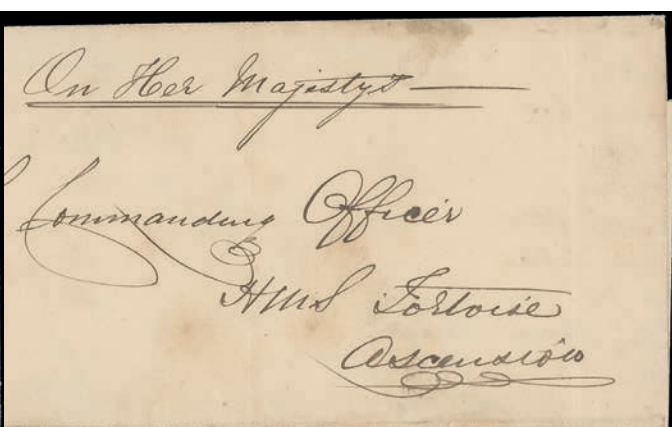 On Her Majesty's
Commanding Officer
HMS Tortoise
Ascension